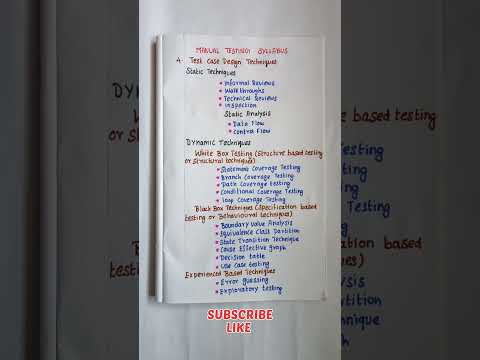 MANUAL TESTING SYLLABUS
4. Test Case Design Techniques
Static Techniques
Informal Reviews
Walkthroughs
Technical Reviews
inspection
Static Analysis
Data Flow
Control Flow
Dynamic Techniques
White Box Testing (Structure based testing
or structural techniques)
Statement Coverage Testing
Branch Coverage Testing
Path Coverage testing
Conditional Coverage Testing
Loop Coverage Testing
Black Box Techniques (Specification based
testing or Behavioural techniques)
Boundary Value Analysis
Equivalence Class Partition
State Transition Technique
Cause Effective graph
Decision table
Use Case testing
Experienced Based Techniques
Error guessing
Exploratory testing
SUBSCRIBE
LIKE